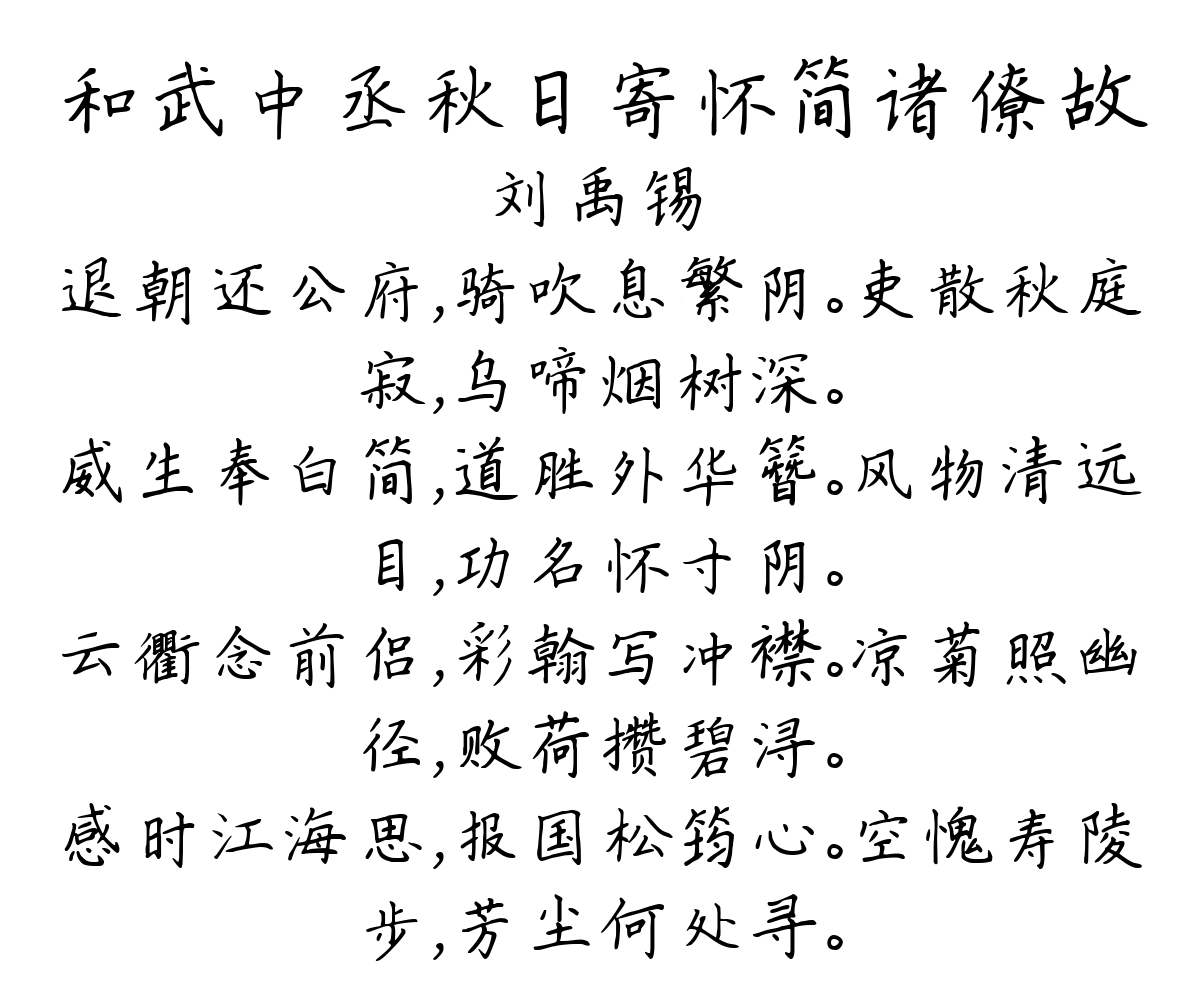 和武中丞秋日寄怀简诸僚故
刘禹锡
退朝还公府,骑吹息繁阴。吏散秋庭
寂,乌啼烟树深。
威生奉白简,道胜外华簪。风物清远
目,功名怀寸阴。
云衢念前侣,彩翰写冲襟。凉菊照幽
径,败荷攒碧浔。
感时江海思,报国松筠心。空愧寿陵
步,芳尘何处寻。